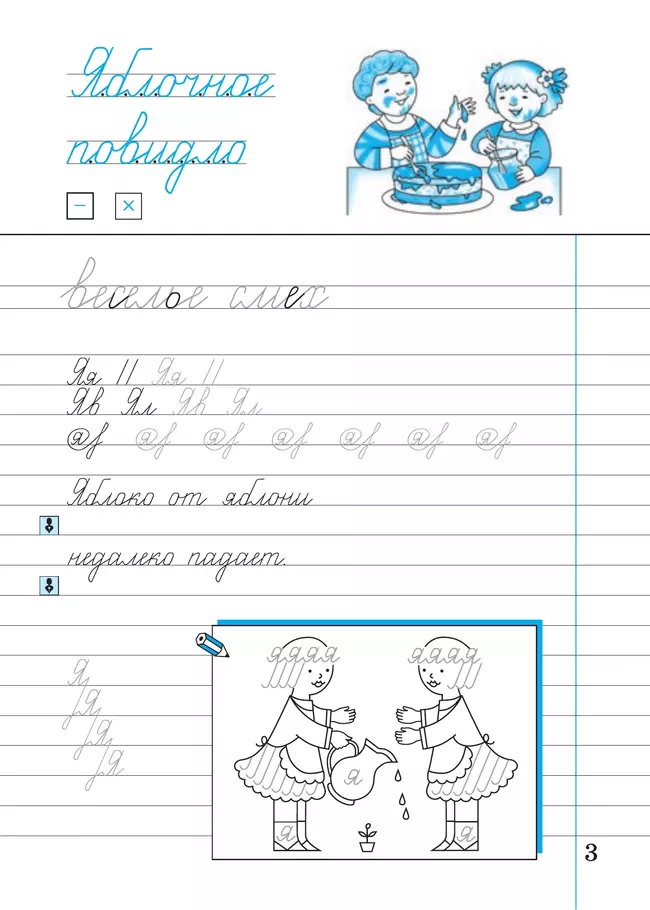 Яблочное
повидло
− ×
веселье смех
Яя // Яя //
Яв Ял Яв Ял
Яблоко от яблони
недалеко падает.
яяяя яяяя
Я
Я
Я
Я
я
я я
3